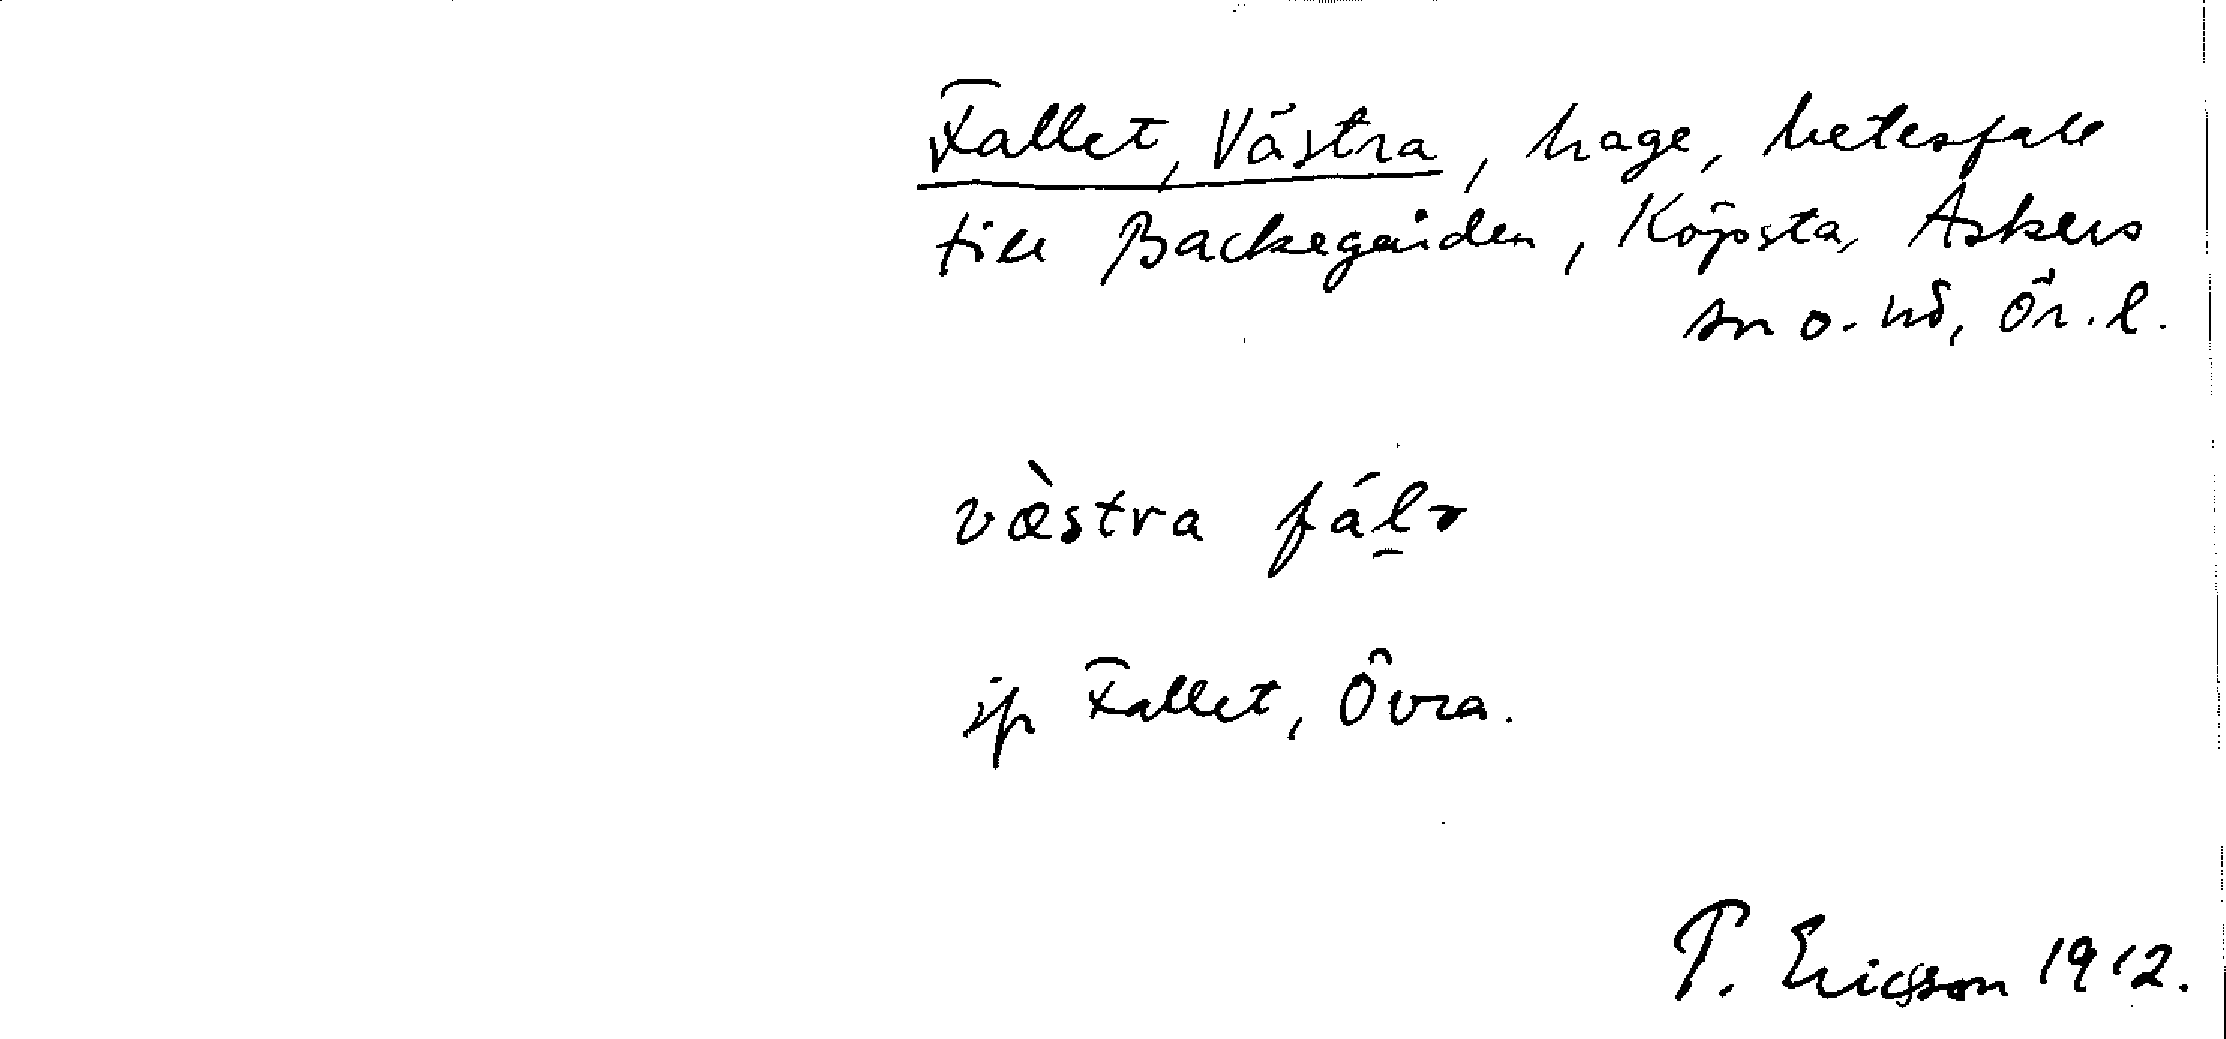 Fallet, Västra, hage, betesfall
till Backegården, Köpsta, Askers
sn o. hd, Ör. l.
væ̀stra fál̠ɤ
jfr Fallet, Övra.
T. Ericsson 1912.